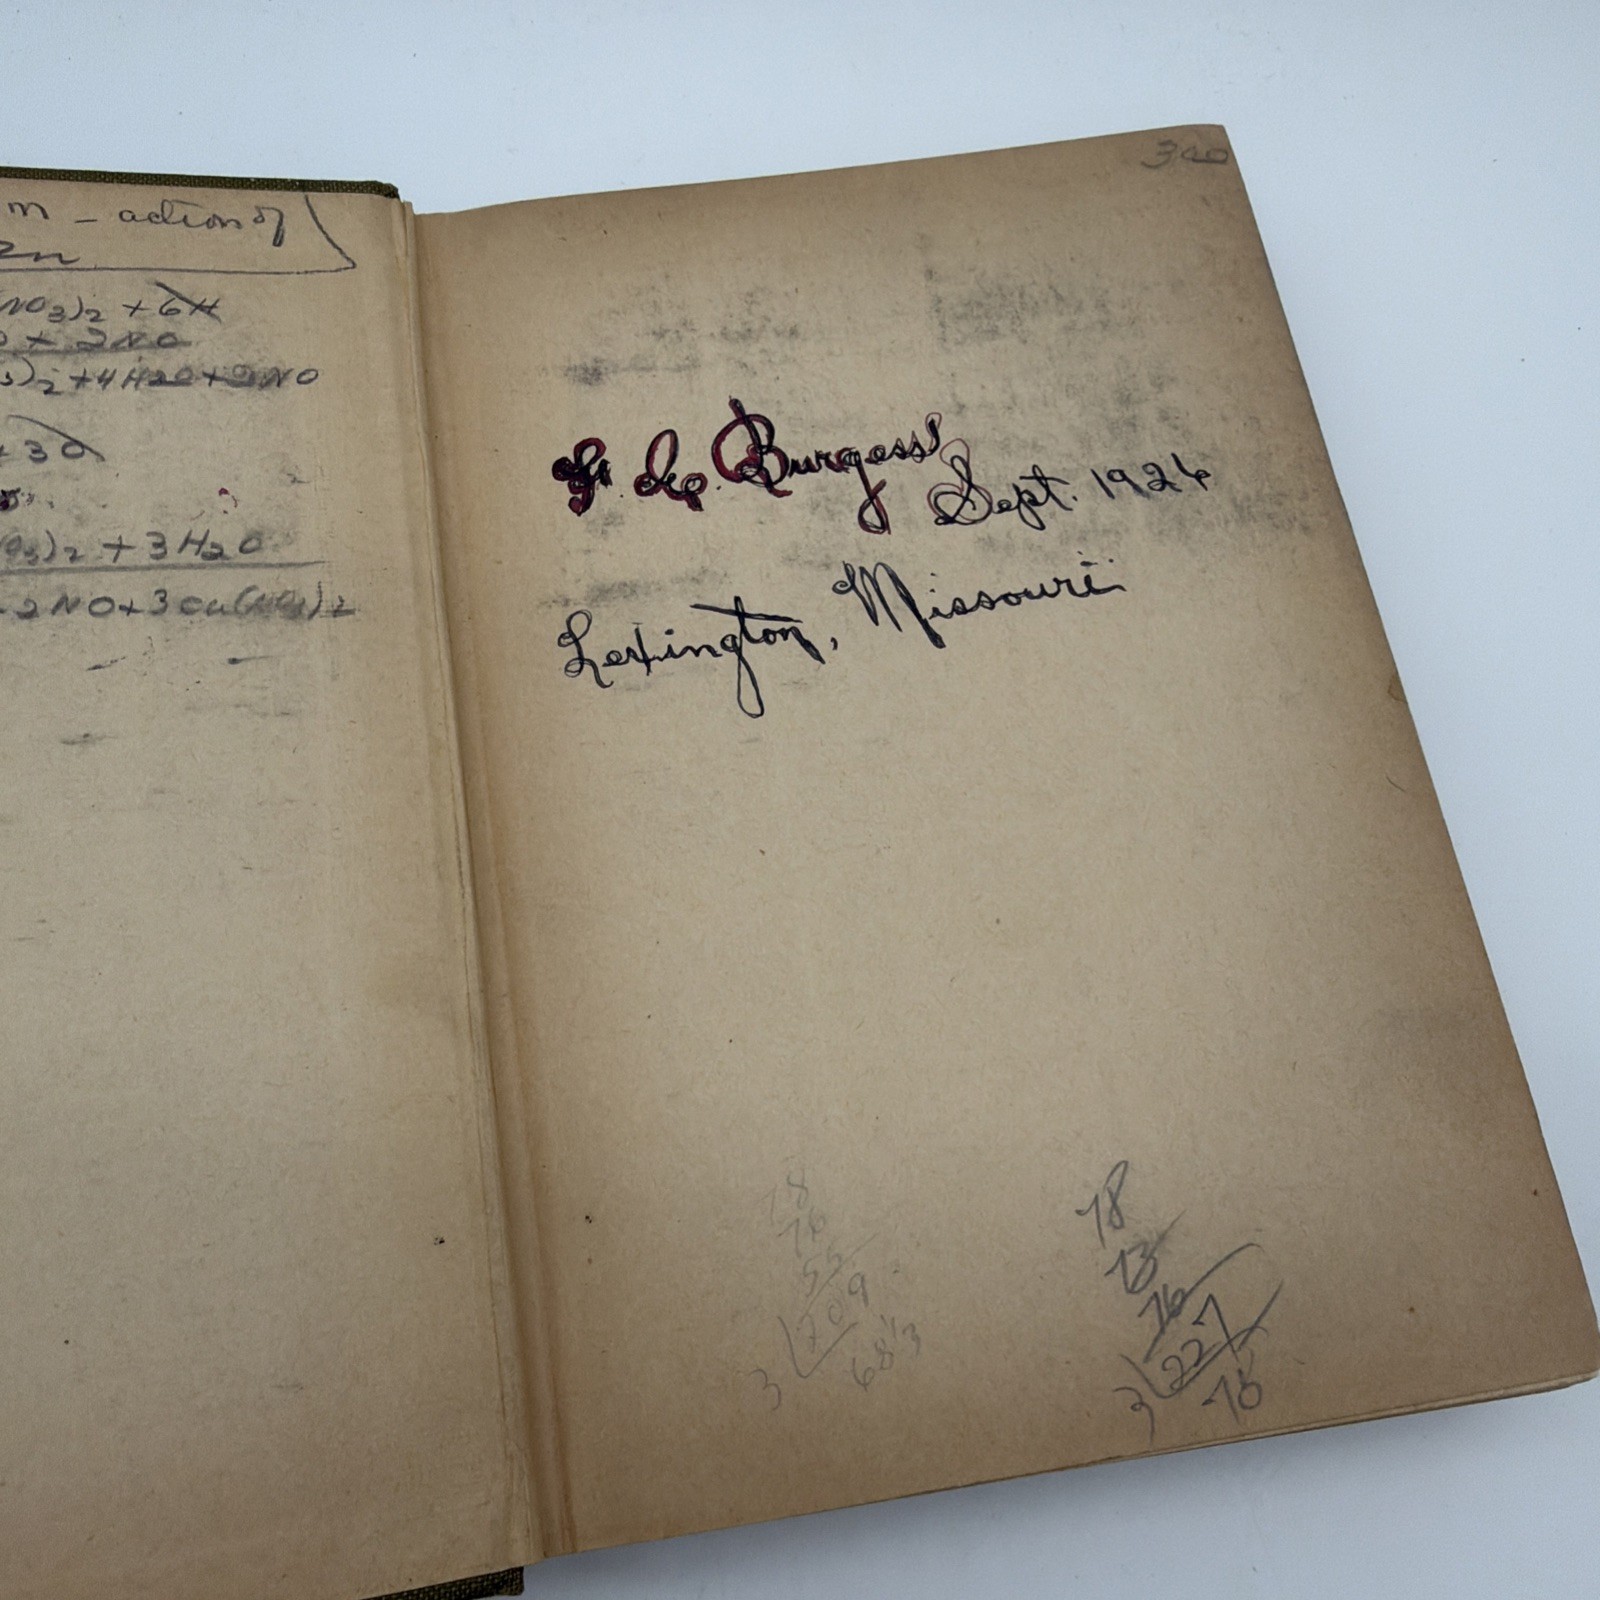 m - action of
Zn
NO3)2 + 6H
O + 2NO
3)2 + 4H2O + 2NO
+ 3O
O3)2 + 3H2O
2NO + 3Cu(NO3)2
300
Burgess
Sept. 1926
Lexington, Missouri
78
76
55
209
3
68 1/3
78
73
76
227
3